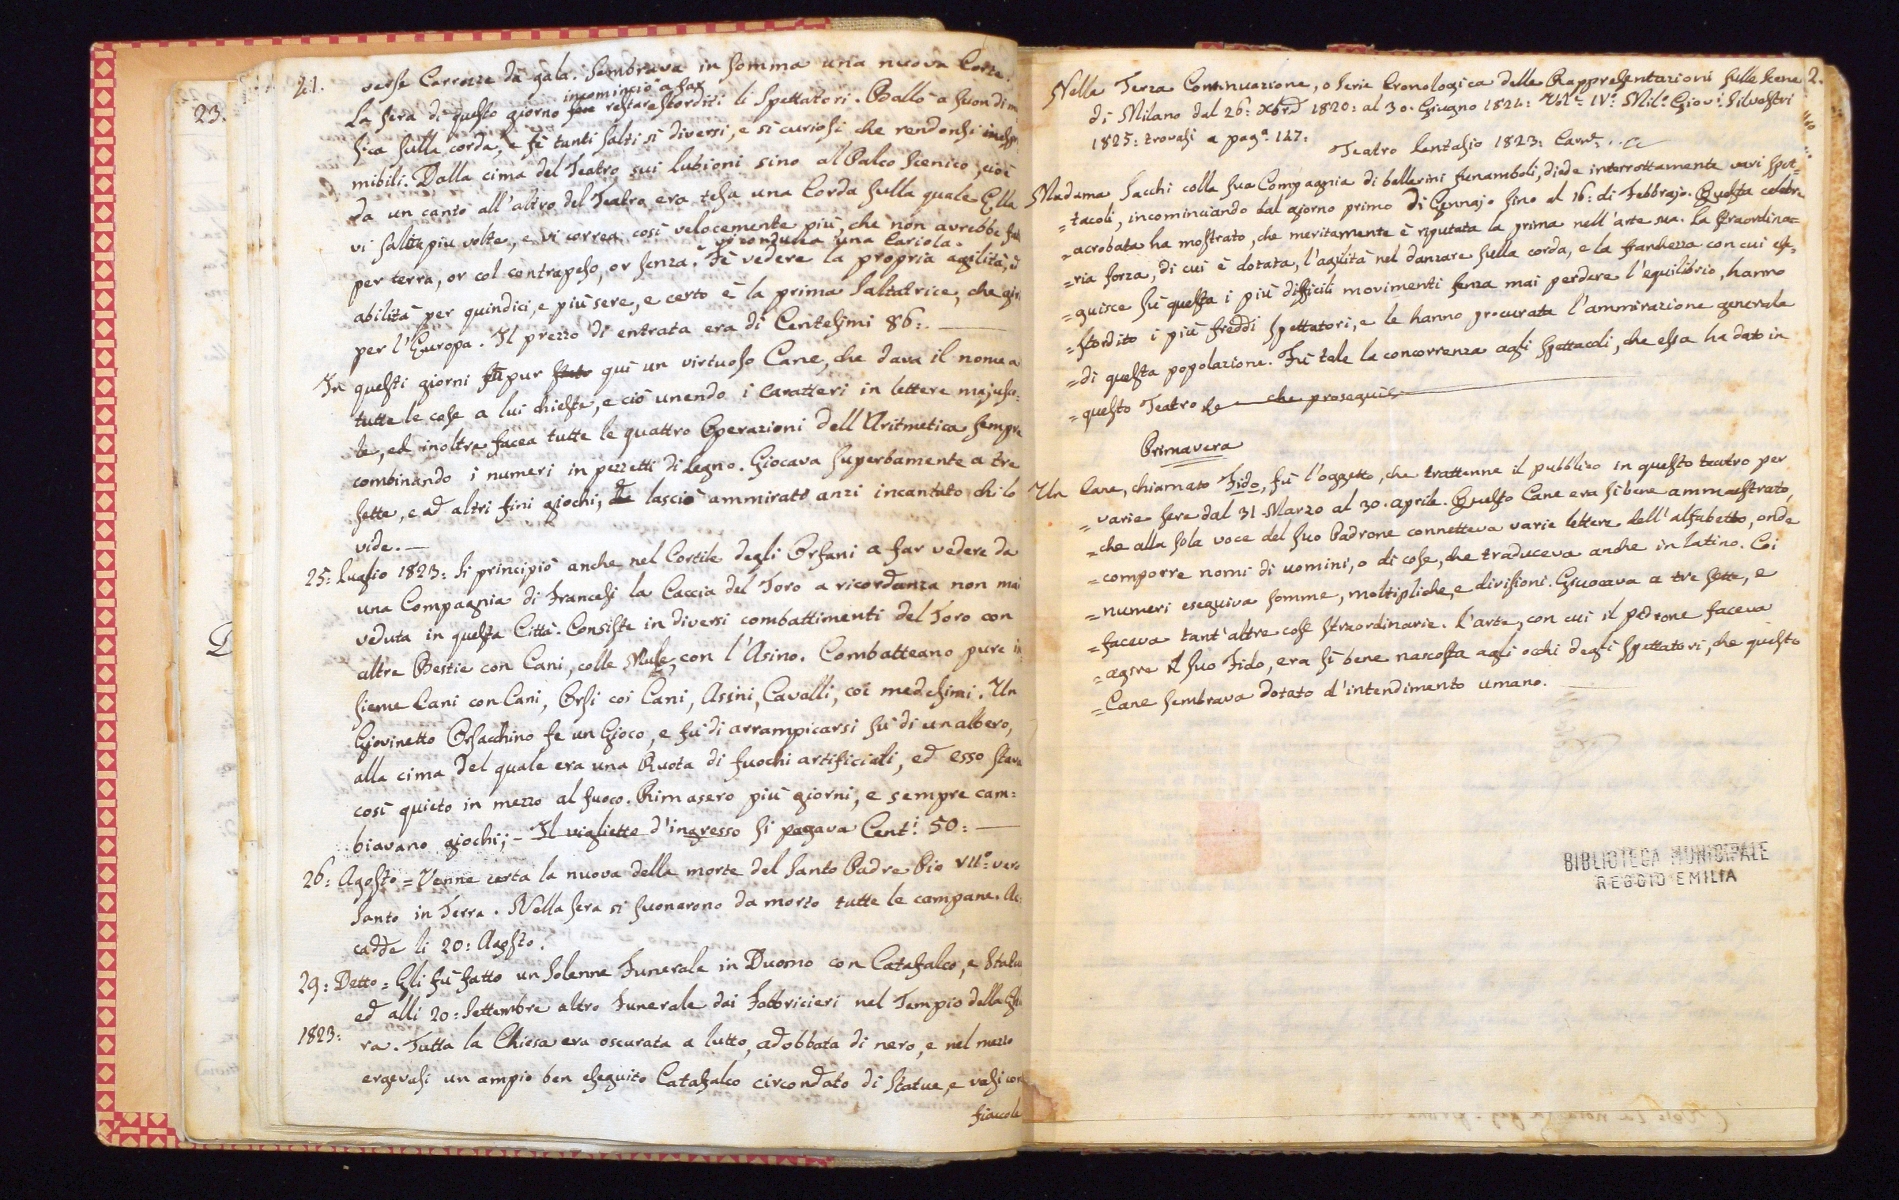 23.
21. verse Carrozze da gala. Sembrava in somma una nuova Corte.
La sera di questo giorno incominciò a far restare storditi li Spettatori. Ballò a suon di
sica sulla corda, e fè tanti salti sì diversi, e sì curiosi che rendonsi
mibili. Dalla cima del Teatro sui lubioni sino al Palco Scenico, cioè
da un canto all'altro del Teatro era tesa una Corda sulla quale Ella
vi saltò più volte, e vi correa così velocemente più, che non avrebbe
vi conducea una Cariola.
per terra, or col contrapeso, or senza. Fè vedere la propria agilità, ed
abilità per quindici, e più sere, e certo è la prima Saltatrice, che
per l'Europa. Il prezzo di entrata era di Centesimi 86:.
In questi giorni fù pur stato quì un virtuoso Cane, che dava il nome a
tutte le cose a lui chieste, e ciò unendo i caratteri in lettere majusco=
le, ed inoltre facea tutte le quattro Operazioni dell'Aritmetica sempre
combinando i numeri in pezzetti di legno. Giocava superbamente a tre
sette, e ad altri fini giochi, lasciò ammirato anzi incantato chi lo
vide.
25: Luglio 1823: Si principiò anche nel Cortile degli Orfani a far vedere da
una Compagnia di Francesi la Caccia del Toro a ricordanza non mai
veduta in questa Città. Consiste in diversi combattimenti del Toro con
altre Bestie con Cani, colle Mule, con l'Asino. Combatteano pure in
sieme Cani con Cani, Orsi coi Cani, Asini, Cavalli, coi medesimi. Un
Giovinetto Orsacchino fe un Gioco, e fù di arrampicarsi sù di un albero,
alla cima del quale era una Ruota di fuochi artificiali, ed esso stava
così quieto in mezzo al fuoco. Rimasero più giorni, e sempre cam=
biavano giochi; - Il vigliette d'ingresso si pagava Cent.i 50:
26: Agosto = Venne certa la nuova della morte del Santo Padre Pio VII.o vero
Santo in Terra. Nella sera si suonerono da morto tutte le campane. Ac
cadde li 20: Agosto.
29: Detto = Gli fù fatto un solenne Funerale in Duomo con Catafalco, e Statue
ed alli 20: Settembre altro Funerale dai Fabbricieri nel Tempio della
1823: ra. Tutta la Chiesa era oscurata a lutto, addobbata di nero, e nel mezzo
ergevasi un ampio ben eseguito Catafalco circondato di Statue, e vasi con
fiaccole
2.
Nella Terza Continuazione, o Serie Cronologica delle Rappresentazioni sulle Scene
di Milano dal 26: Xbre 1820: al 30: Giugno 1824: IV: Mil.o Giov.i Silvestri
1825: trovasi a pag.a 147:
Teatro Lentasio 1823: Carn.
Madama Sacchi colla sua Compagnia di ballerini funamboli, diede interrottamente vari spet-
=tacoli, incominciando dal giorno primo di Gennajo sino al 16: di Febbrajo. Questa celebre
=acrobata ha mostrato, che meritamente è riputata la prima nell'arte sua. La straordina=
=ria forza, di cui è dotata, l'agilità nel danzare sulla corda, e la franchezza con cui ese-
=guisce sù questa i più difficili movimenti senza mai perdere l'equilibrio, hanno
=stordito i più freddi spettatori, e le hanno procurata l'ammirazione generale
=di questa popolazione. Fù tale la concorrenza agli Spettacoli, che essa ha dato in
=questo Teatro che proseguì
Primavera
Un Cane, chiamato Fido, fù l'oggetto, che trattenne il pubblico in questo teatro per
=varie sere dal 31. Marzo al 30. aprile. Questo Cane era sì bene ammaestrato,
=che alla sola voce del suo Padrone connetteva varie lettere dell'alfabetto, onde
=comporre nomi di uomini, o di cose, che traduceva anche in latino. Coi
=numeri eseguiva somme, moltipliche, e divisioni. Giuocava a tre sette, e
=faceva tant'altre cose straordinarie. L'arte, con cui il pdrone faceva
=agire il suo Fido, era sì bene nascosta agli occhi degli spettatori, che questo
=Cane sembrava dotato d'intendimento umano.
BIBLIOTECA MUNICIPALE
REGGIO EMILIA